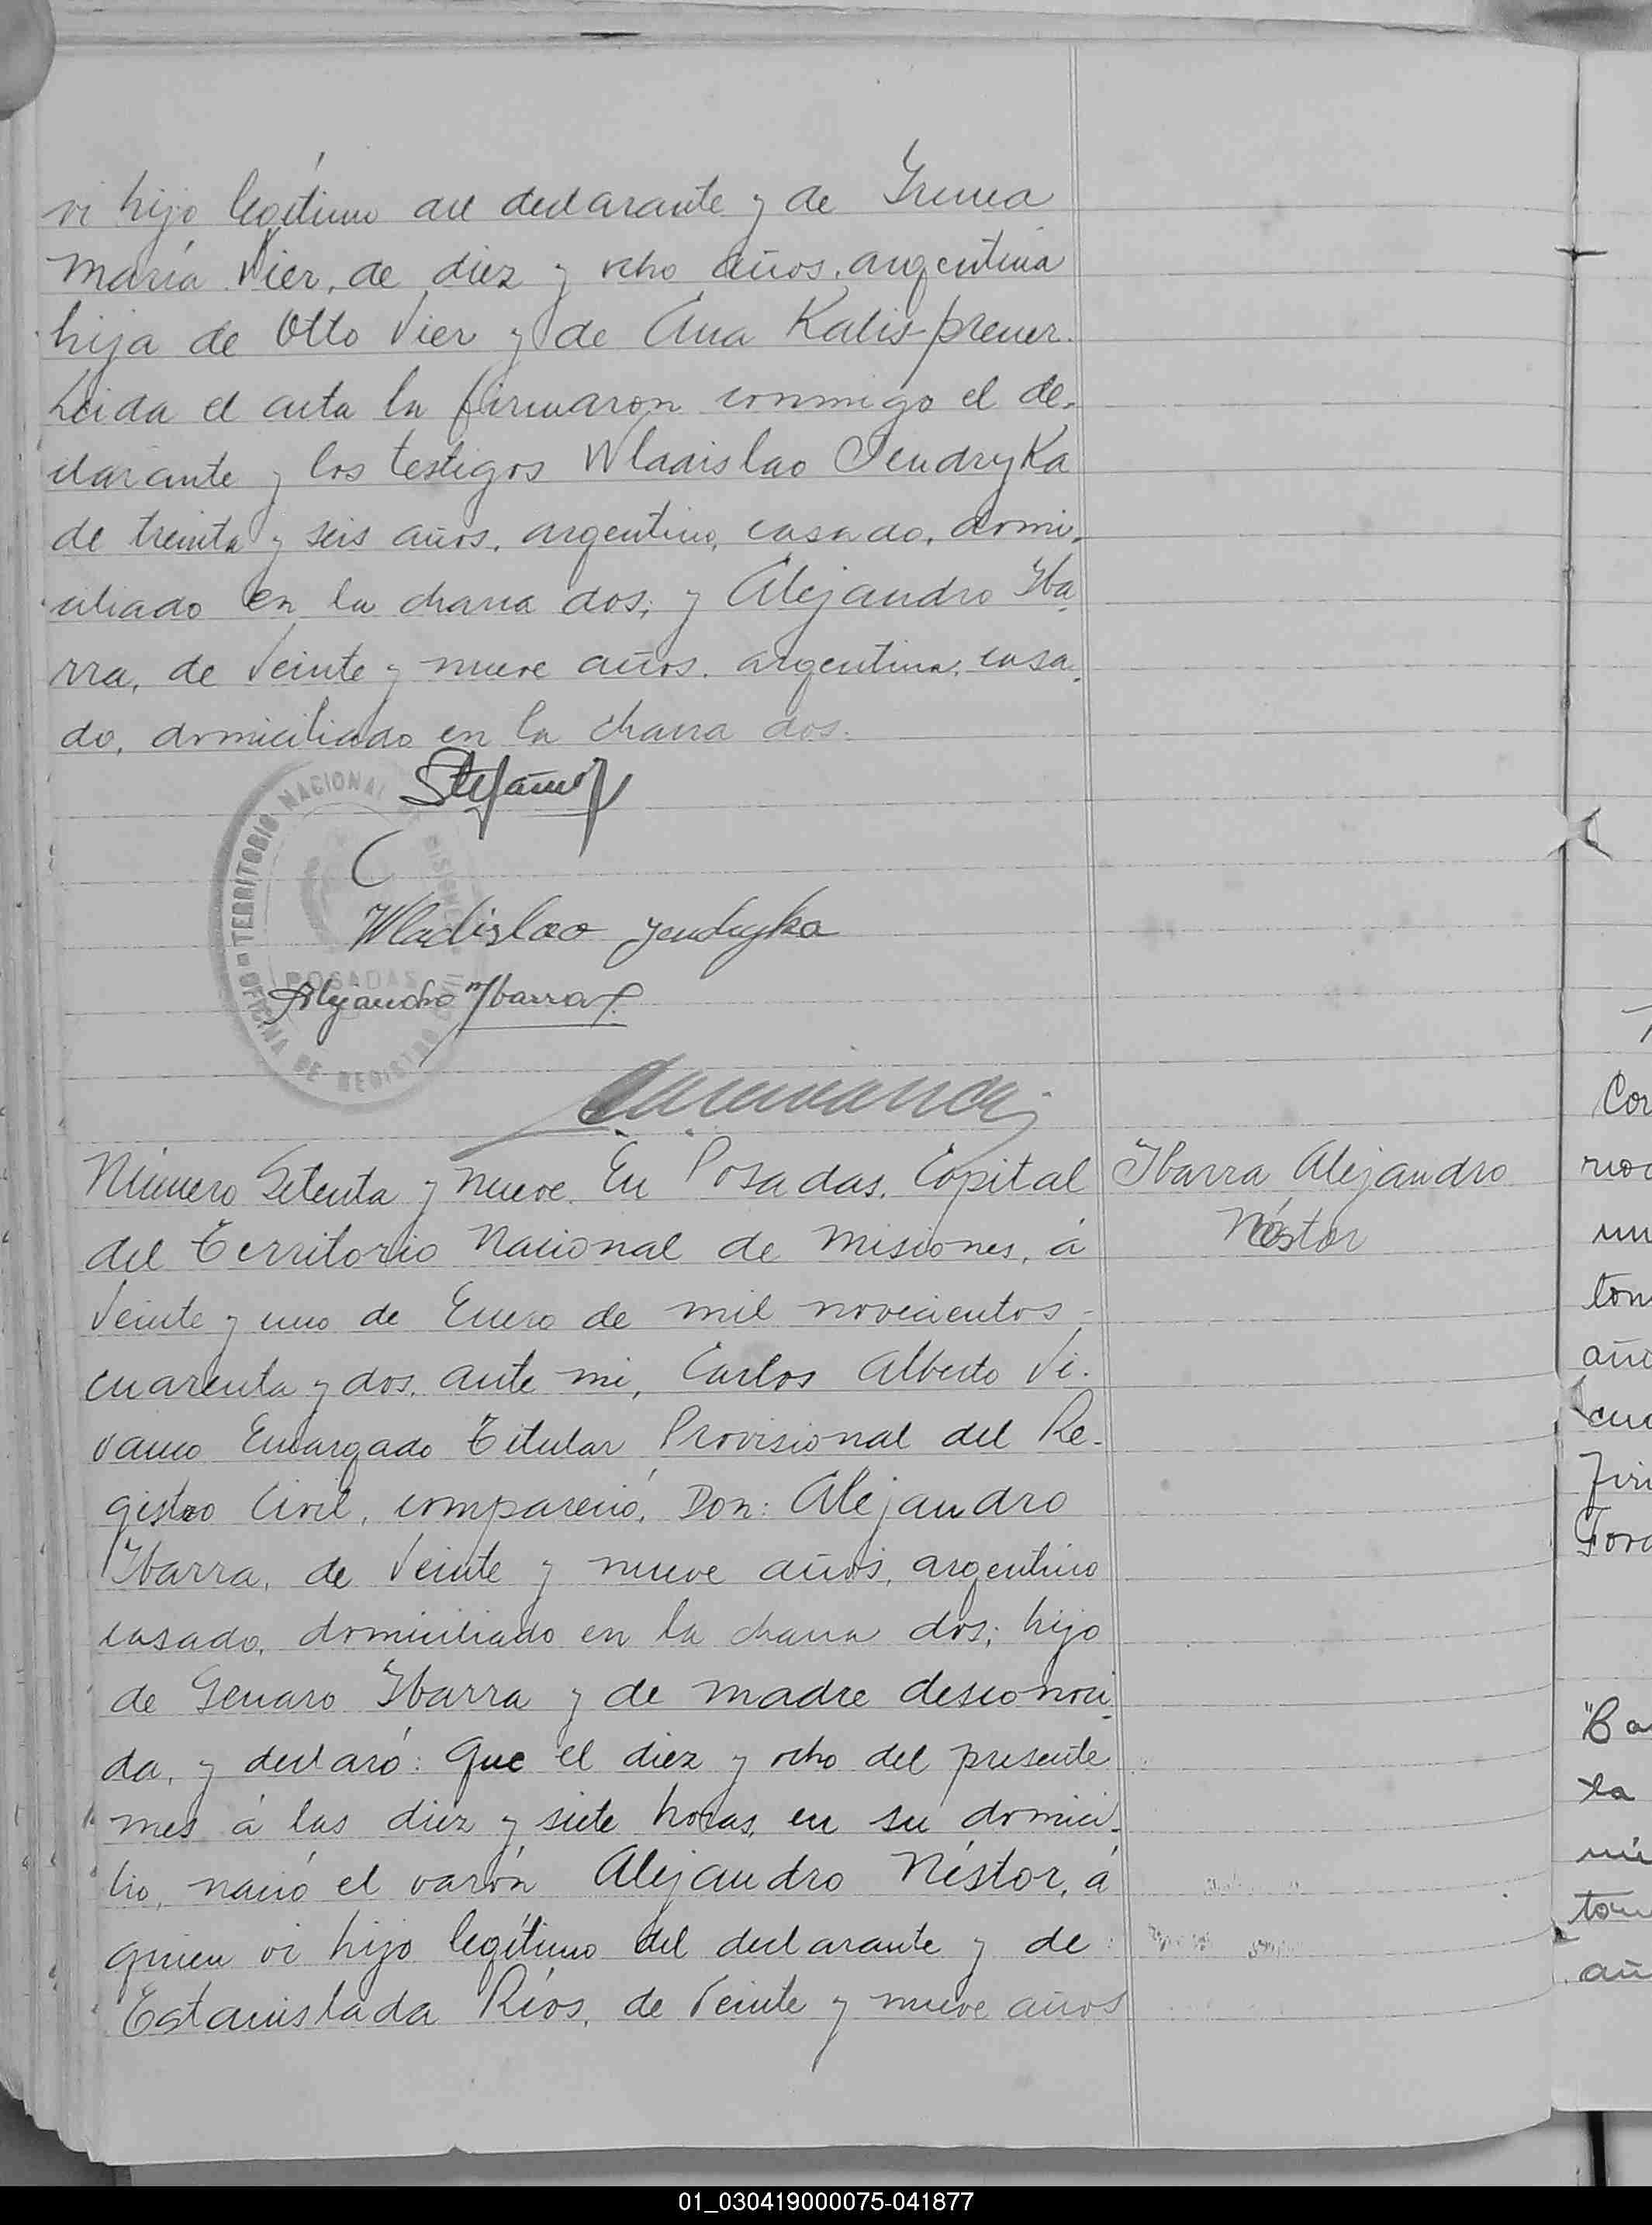 vi hijo legítimo del declarante y de Irenea
María Vier, de diez y ocho años, argentina
hija de Otto Vier y de Ana Kalis-prener.
Leida el acta la firmaron conmigo el de-
clarante y los testigos Wladislao Jendryka
de treinta y seis años, argentino, casado, domi-
ciliado en la chacra dos; y Alejandro Iba-
rra, de veinte y nueve años, argentino, casa-
do, domiciliado en la chacra dos.
OFICINA DE REGISTRO TERRITORIO NACIONAL MISIONES
POSADAS
Wladislao Jendryka
Alejandro Ibarra
Número Setenta y nueve. En Posadas, Capital
del Territorio Nacional de Misiones, á
veinte y uno de Enero de mil novecientos
cuarenta y dos, ante mi, Carlos Alberto Vi-
vanco Encargado Titular Provisional del Re-
gistro Civil, compareció, Don: Alejandro
Ibarra, de veinte y nueve años, argentino
casado, domiciliado en la chacra dos; hijo
de Genaro Ibarra y de madre desconoci-
da, y declaró: Que el diez y ocho del presente
mes á las diez y siete horas, en su domici-
lio, nació el varón Alejandro Néstor, á
quien vi hijo legítimo del declarante y de
Estanislada Ríos, de veinte y nueve años
Ibarra Alejandro
Néstor
01_030419000075-041877